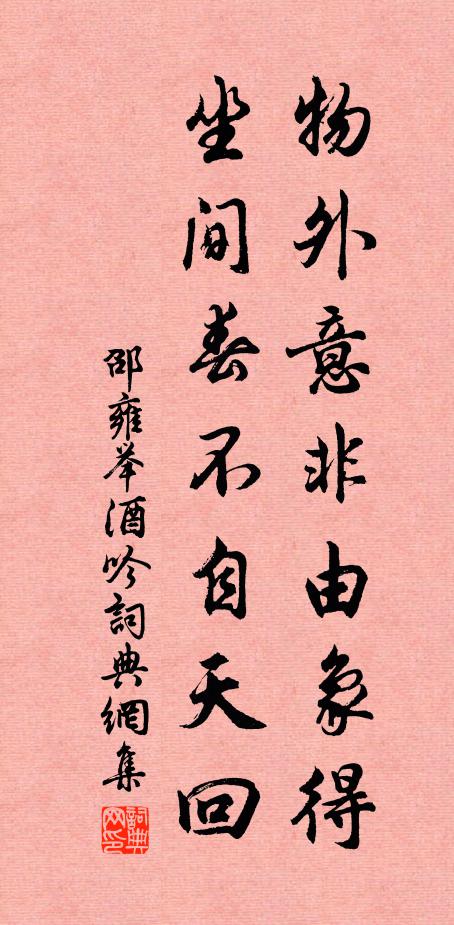 物外意非由象得
坐间春不自天回
邵雍举酒吟詞典網集
詞典网印